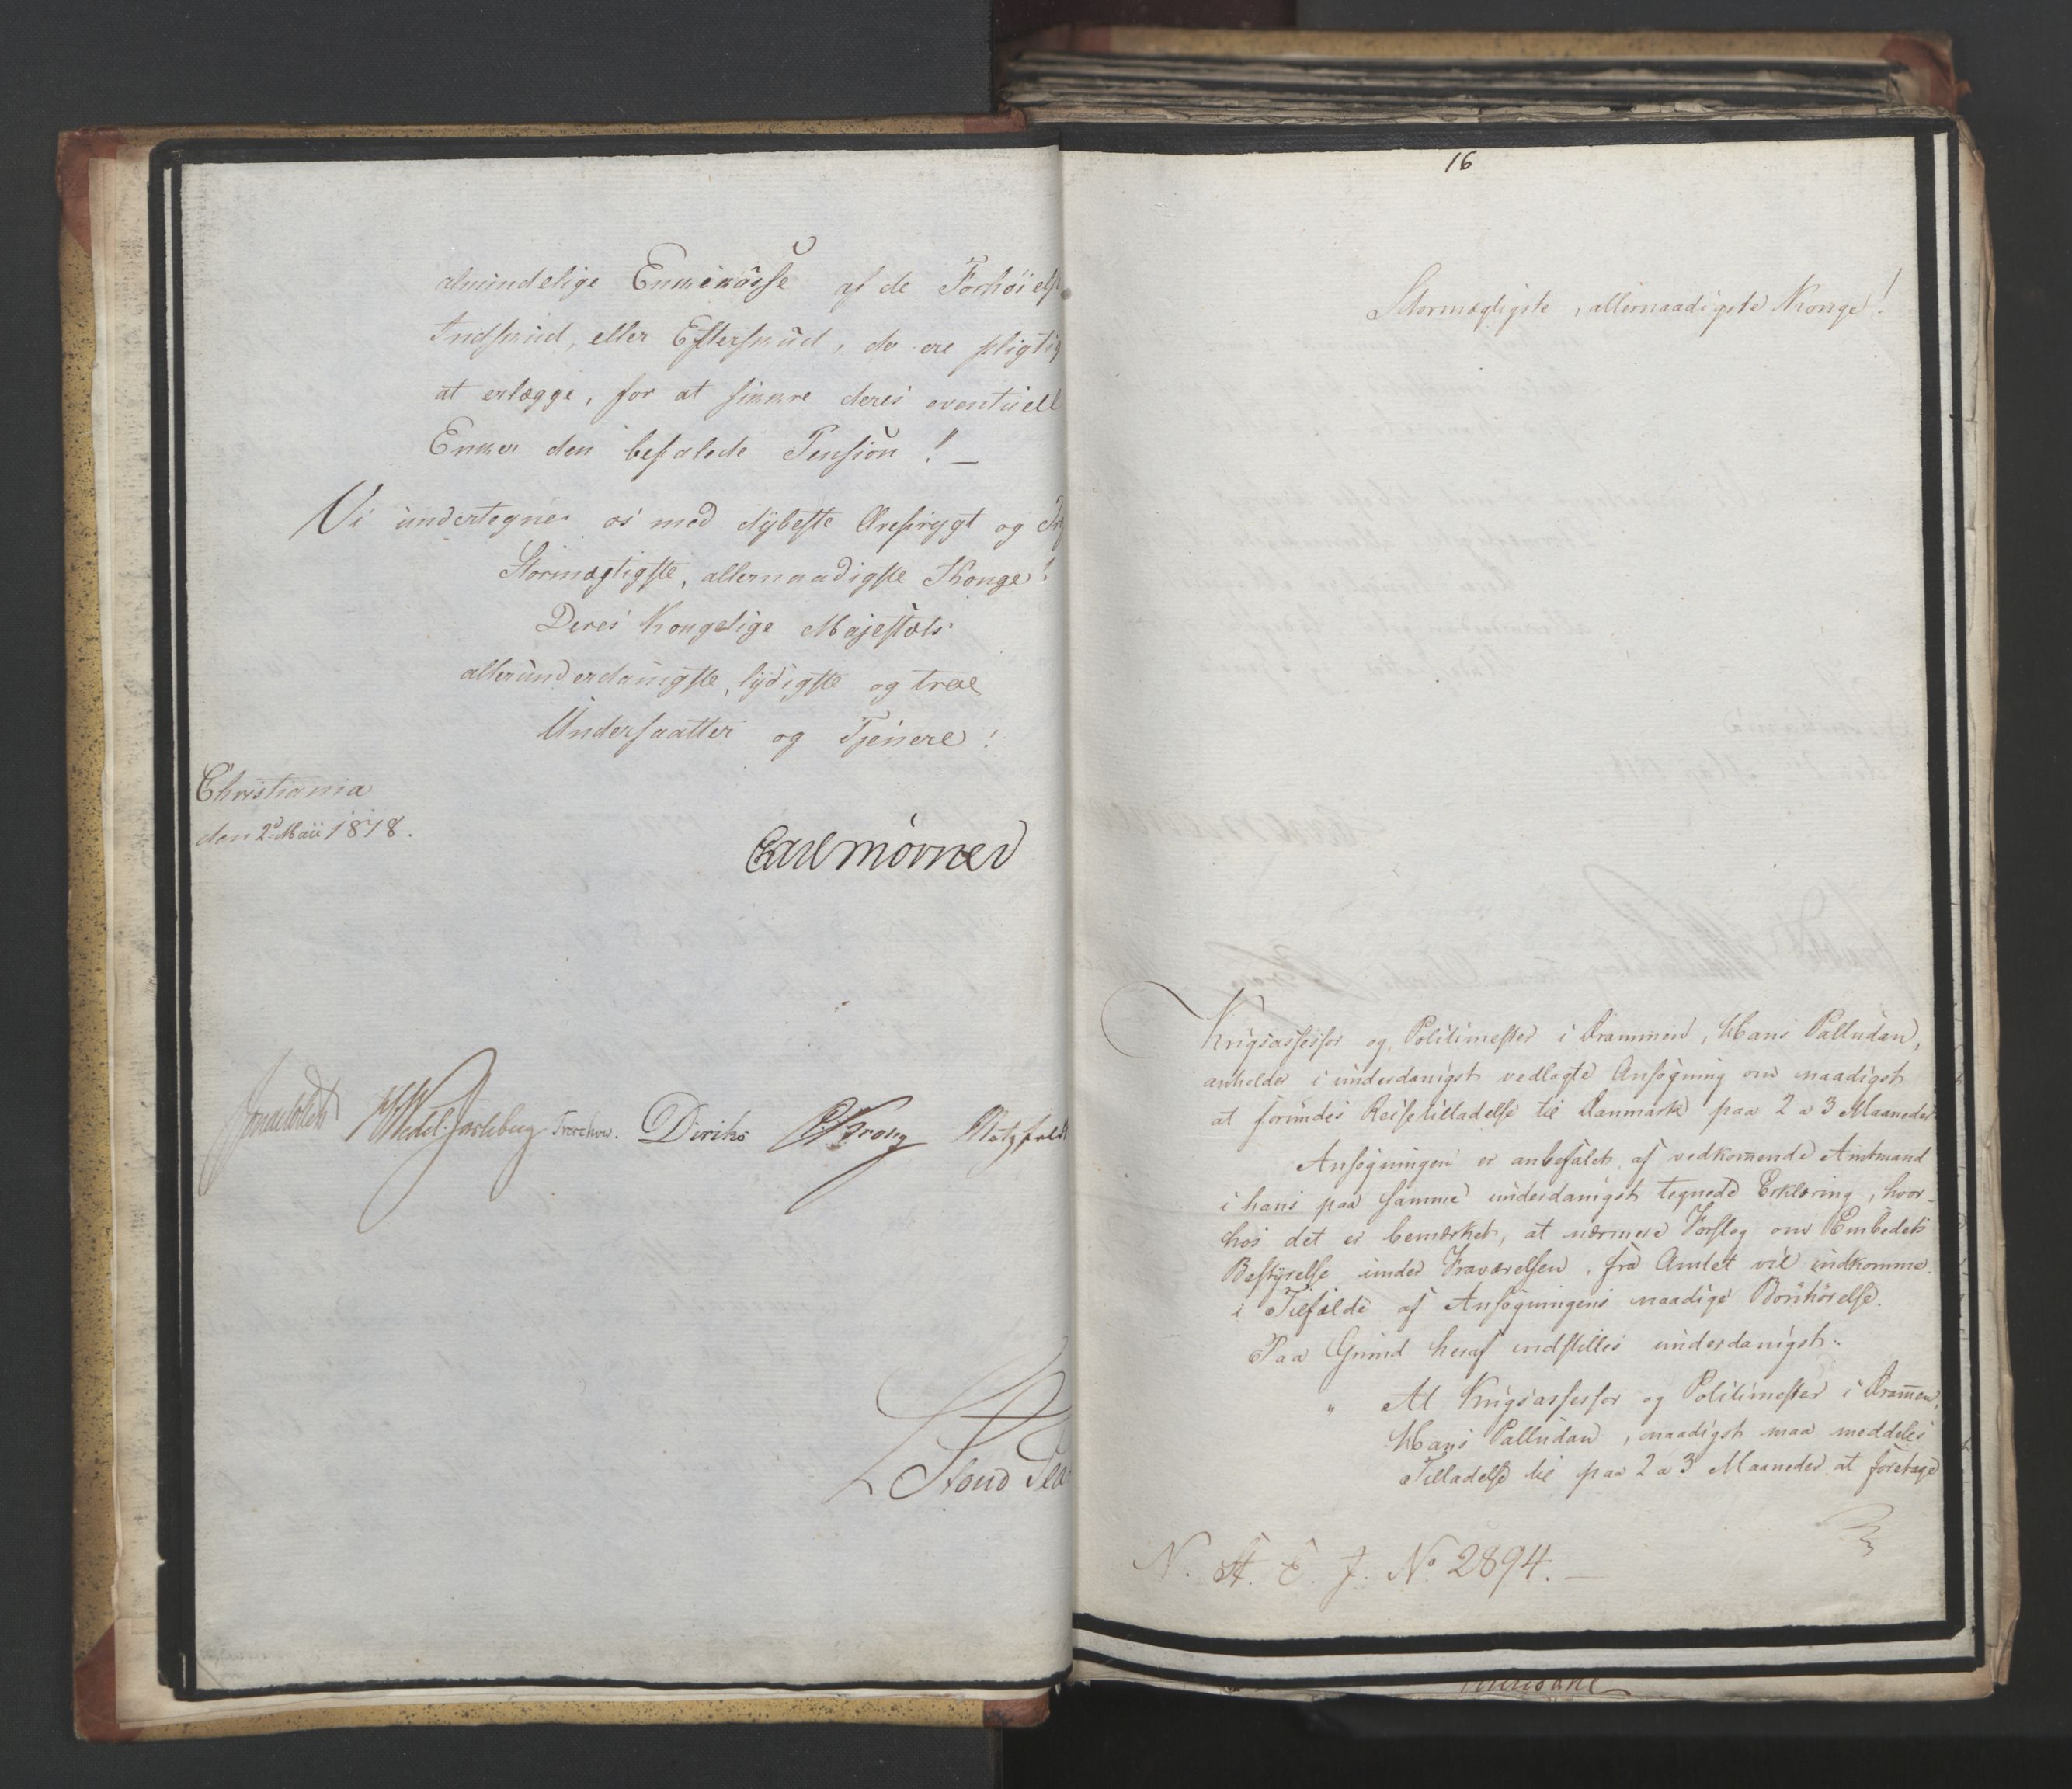 almindelige Enkekasse af de Forhøielse
Indskud, eller Efterskud, de ere pligtig
at erlægge, for at sikkre deres eventuell
Enker den befalede Pension! —
Vi undertegner os med dybeste Ærefrygt og
Stormægtigste, allernaadigste Konge!
Deres Kongelige Majestæts
allerunderdanigste, lydigste og troe
Undersaatter og Tjenere!
Christiania
den 2d Maii 1818.
Carl Mörner
Sommerhielm HWedel Jarlsberg Treschow. Diriks Krog Motzfeldt
16
Stormægtigste, allernaadigste Konge!
Krigsassessor og Politimester i Drammen, Hans Palludan,
anholder i underdanigst vedlagte Ansøgning om naadigst
at forundes Reisetilladelse til Danmark paa 2 a 3 Maaneder.
Ansøgningen er anbefalet af vedkommende Amtmand
i hans paa samme underdanigst tegnede Erklæring, hvor-
hos det er bemærket, at nærmere Forslag om Embedets
Bestyrelse under Fraværelsen, fra Amtet vil indkomme.
i Tilfælde af Ansøgningens naadige Bönhörelse.
Paa Grund heraf indstilles underdanigst:
" At Krigsassessor og Politimester i Drammen,
Hans Palludan, naadigst maa meddeles
Tilladelse til paa 2 a 3 Maaneder at foretage
N. St. E. J. No 2894. —